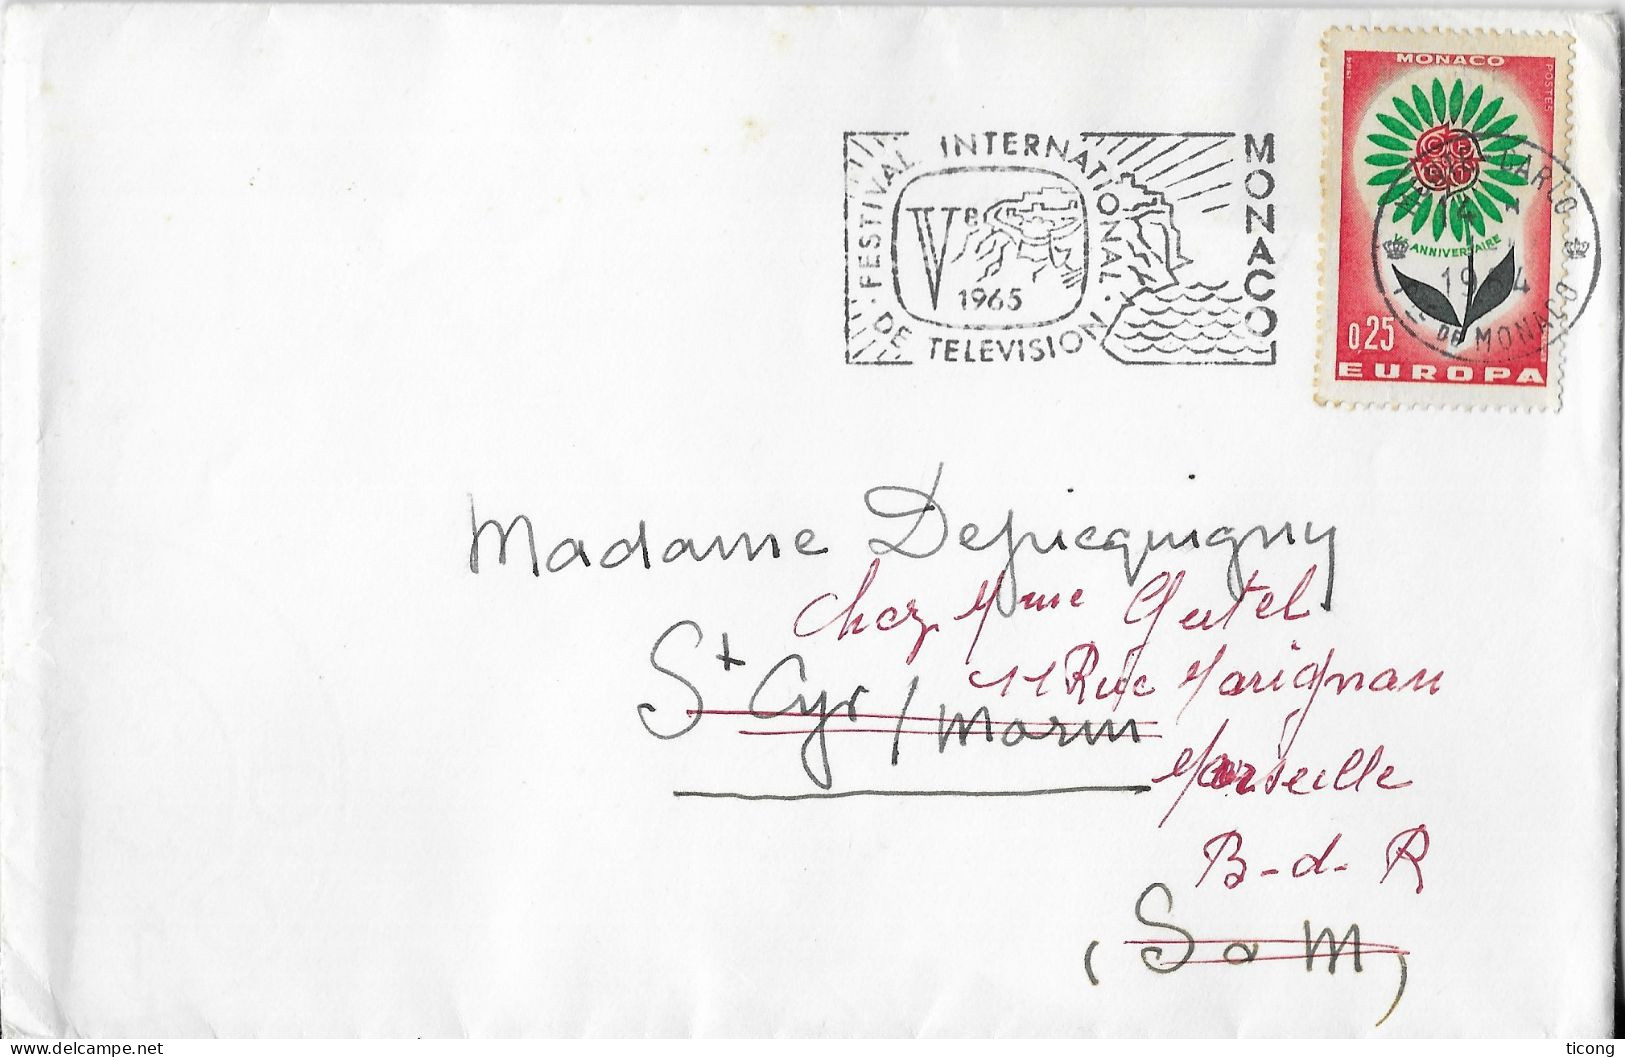 MONACO
1964
POSTES
Vᵉ ANNIVERSAIRE
0,25
EUROPA
CARLO
1964
Pté DE MONACO
FESTIVAL INTERNATIONAL
DE TELEVISION
Vᵉ
1965
MONACO
Madame Depicquigny
chez Mme Gutel
St Cyr / Morin
11 Rue Marignan
Marseille
B-d-R
(S o M)
delcampe.net
ticong